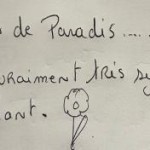 de Paradis.....
vraiment très sy
ant.